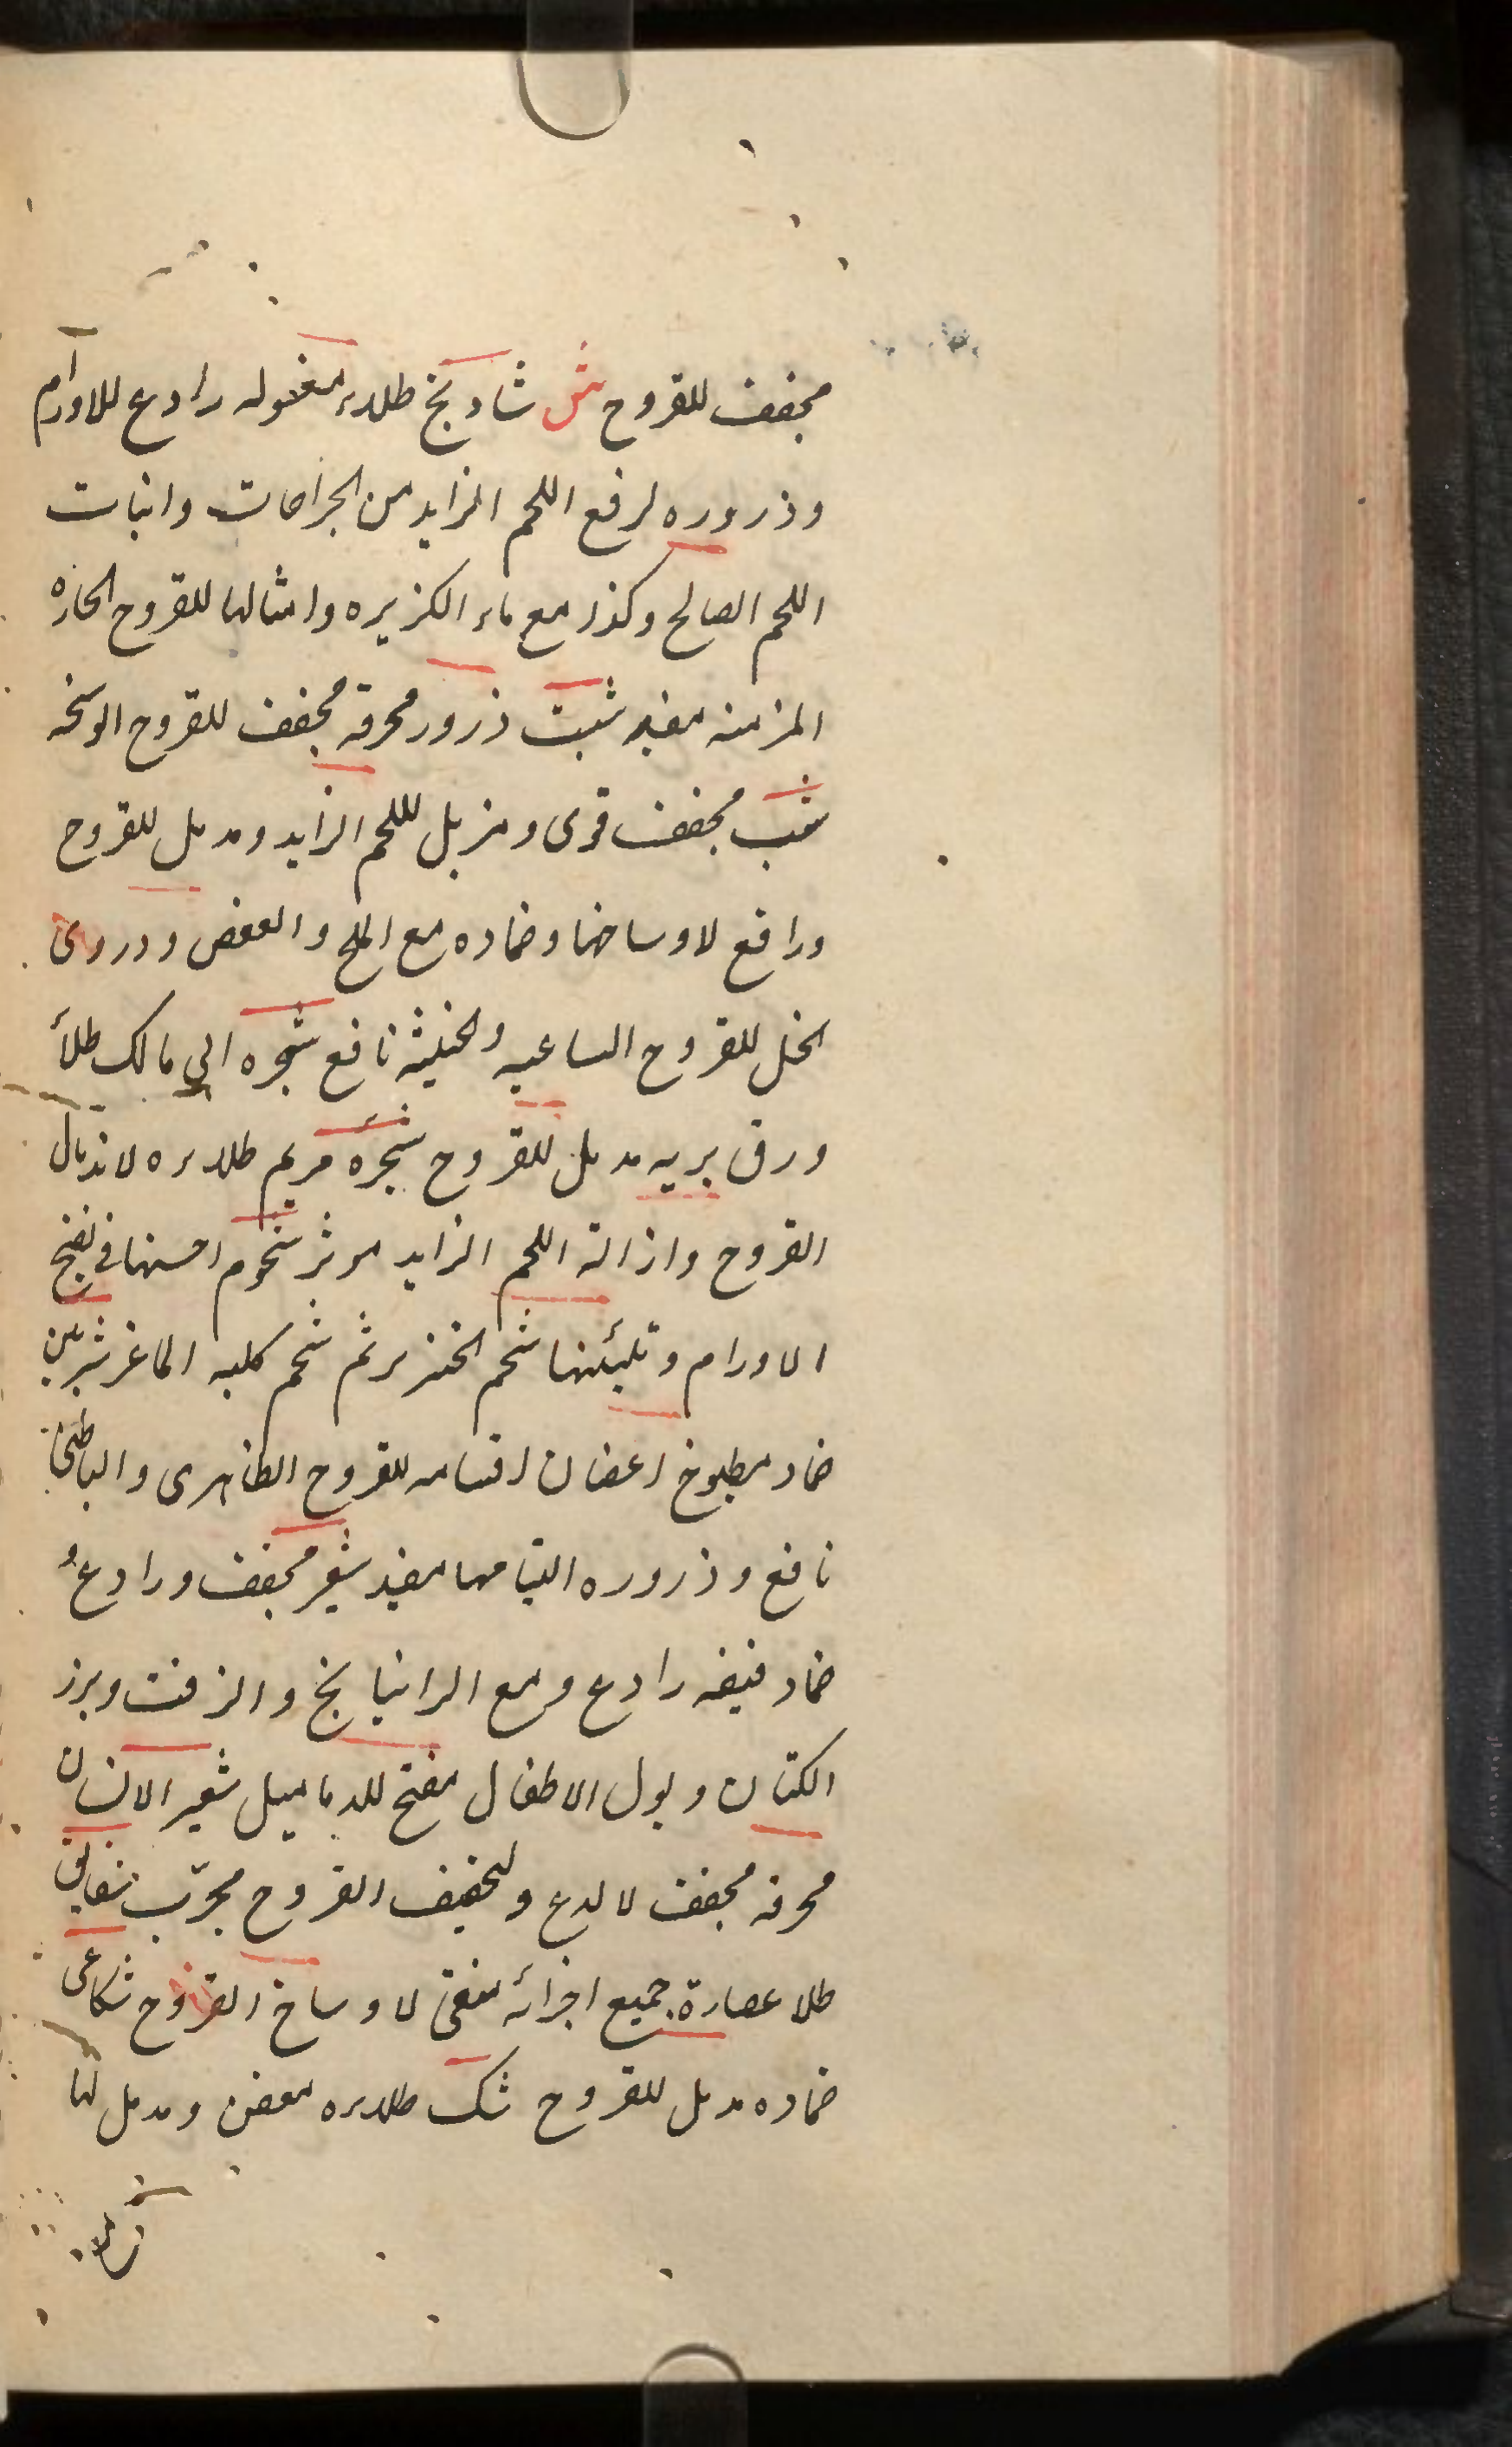 مجفف للقروح ش شادنج طلاء مغسوله رادع للاورام
وذروره لرفع اللحم الزايد من الجراحات وانبات
اللحم الصالح وكذا مع ماء الكزبره وامثالها للقروح الحاره
المزمنه مفيد شبت ذرور محرقه مجفف للقروح الوسخه
شب مجفف قوى ومزيل للحم الزايد ومدمل للقروح
ورافع لاوساخها وضماده مع الملح والعفص ودردى
الخل للقروح الساعيه والخبيثه نافع شجره ابي مالك طلاء
ورق بريه مدمل للقروح شجره مريم طلاءه لاندمال
القروح وازالة اللحم الزايد موثر شحوم احسنها في نضج
الاورام وتليينها شحم الخنزير ثم شحم كليه الماعز شربين
ضماد مطبوخ اغصان اقسامه للقروح الظاهرى والباطنى
نافع وذروره التيامها مفيد شعير مجفف ورادع و
ضماد رادع ومع الراتيانج والزفت وبزر
الكتان وبول الاطفال مفتح للدماميل شعر الانسان
محرقه مجفف لالدع ولتجفيف القروح مجرّب شقايق
طلا عصارة جميع اجزائه منقى لاوساخ القروح شكاعى
ضماده مدمل للقروح شك طلاءه معفن ومدمل لها